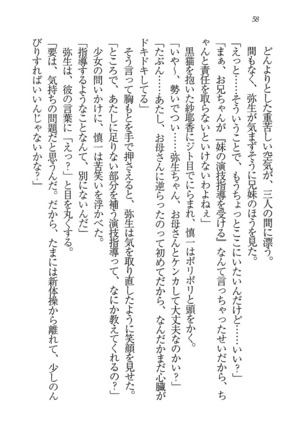 58
どんよりとした重苦しい空気が、三人の間に漂う。
間もなく、弥生が気まずそうに兄妹のほうを見た。
「えっと……そういうことで、もうちょっとここにいたいんだけど……いい?」
「まぁ、お兄ちゃんが『妹の演技指導を受ける』なんて言っちゃったせいだから、ち
ゃんと責任を取らないといけないわよねぇ」
黒猫を抱いた紗耶香にジト目でにらまれ、慎一はポリポリと頭をかく。
「いや〜、勢いでつい……弥生ちゃん、お母さんとケンカして大丈夫なのかい?」
「たぶん……あたし、お母さんに逆らったのって初めてだから、なんだかまだ心臓が
ドキドキしてる」
そう言って胸をおさえてから、弥生は気を取り直したように笑顔を見せた。
「ところで、あたしに足りない部分を補う演技指導って、なにか考えているの?」
少女の問いかけに、慎一は苦笑いを浮かべた。
「指導するようなことなんて、別にないんだ」
弥生は、彼の言葉に「えっ?」と目を丸くする。
「要は、気持ちの問題だと思うんだ。だから、たまには新体操から離れて、少しのん
びりすればいいんじゃないかな?」